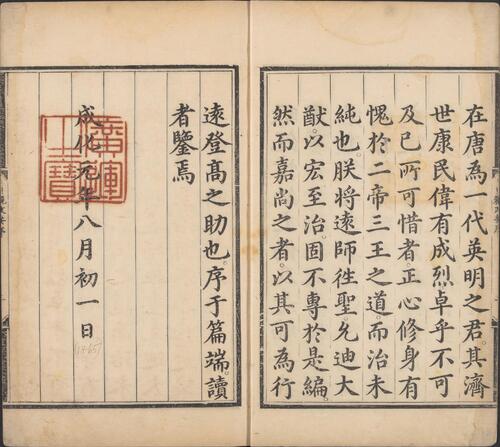 在唐為一代英明之君。其濟
世康民偉有成烈卓乎不可
及已。所可惜者。正心修身有
愧於二帝三王之道。而治未
純也。朕將遠師往聖。允迪大
猷。以宏至治。固不專於是編。
然而嘉尚之者。以其可為行
遠登高之助也。序于篇端。讀
者鑒焉
成化元年八月初一日
1465
廣運之寶